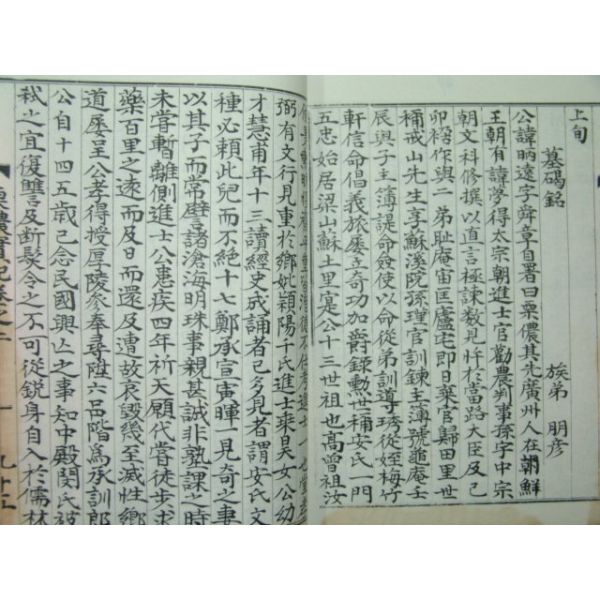 上旬
墓碣銘
族弟 朋彦
公諱昞遠字舜章自署曰栗儂其先廣州人在朝鮮
王朝有諱夢得太宗朝進士官勸農判事孫字中宗
朝文科修撰以直言極諫數見忤於當路大臣及己
卯禍作與二弟耻庵宙匡盧宅即日棄官歸田里世
稱戒山先生享蘇溪院孫理官訓鍊主薄號龜庵壬
辰與子主簿諟命僉使以命從弟訓導琇從姪梅竹
軒信命倡義旅屢立奇功加爵錄勲世稱安氏一門
五忠始居梁山蘇土里寔公十三世祖也高曾祖汝
弼有文行見重於鄉妣潁陽千氏進士乘昊女公幼
才慧甫年十三讀經史成誦者已多見者謂安氏文
種必賴此兒而不絶十七鄭承宣寅暉一見奇之事
以其子而常譬諸滄海明珠事親甚誠非塾課之時
未嘗暫離側進士公患疾四年祈天願代嘗徒步求
藥百里之遠而及日而還及遭故哀毀幾至滅性鄉
道屡呈公孝得授厚陵參奉尋陞六品階爲承訓郎
公自十四五歲已念民國興亾之事知中殿閔氏被
弑之宜復讐及断髮令之不可從鋭身自入於儒林